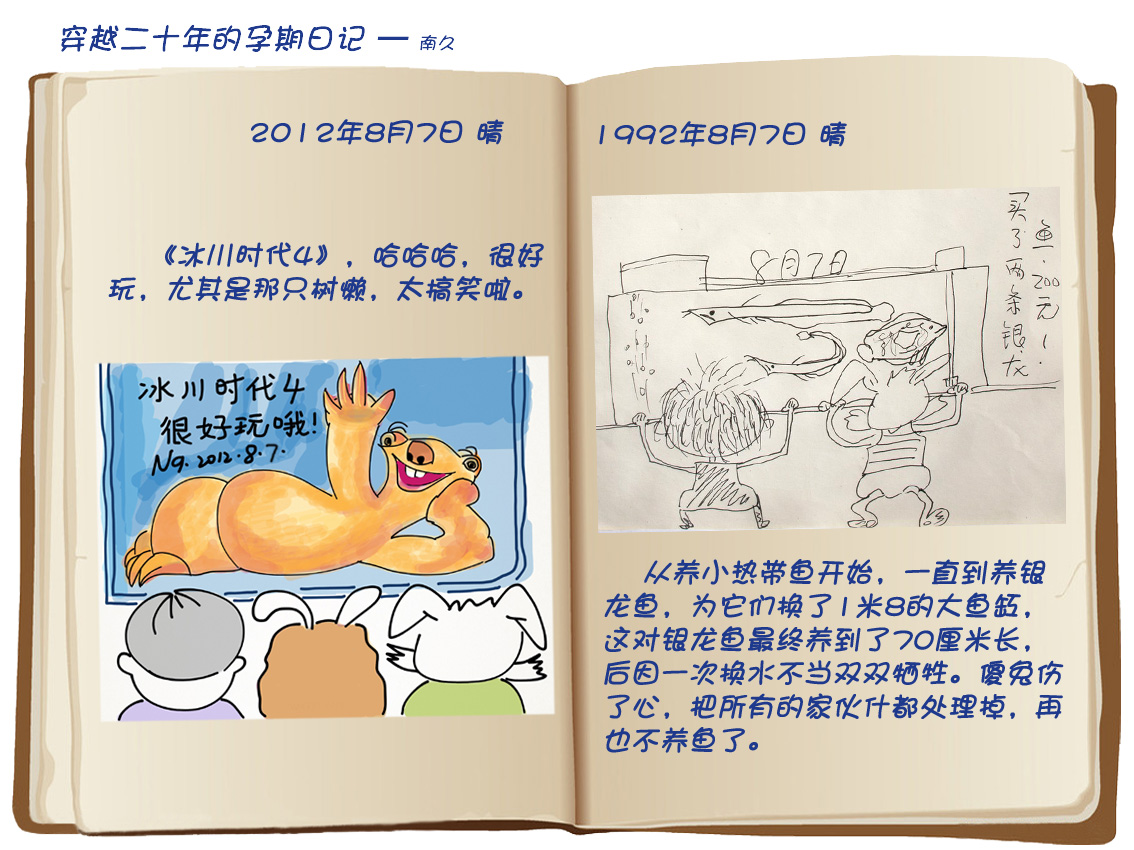 穿越二十年的孕期日记 — 南久
2012年8月7日 晴
《冰川时代4》，哈哈哈，很好
玩，尤其是那只树懒，太搞笑啦。
冰川时代4
很好玩哦!
N9.2012.8.7.
1992年8月7日 晴
8月7日
买了两条银龙
鱼.200元!.
从养小热带鱼开始，一直到养银
龙鱼，为它们换了1米8的大鱼缸，
这对银龙鱼最终养到了70厘米长，
后因一次换水不当双双牺牲。傻兔伤
了心，把所有的家伙什都处理掉，再
也不养鱼了。